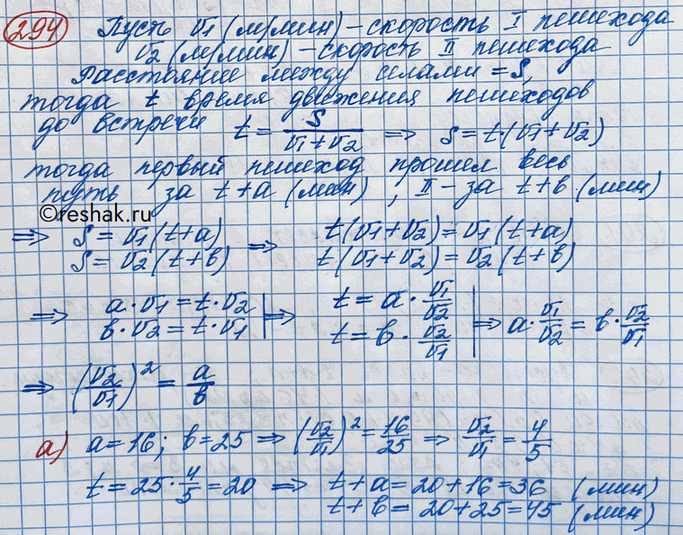 294 Пусть v1 (м/мин) – скорость I пешехода
v2 (м/мин) – скорость II пешехода
Расстояние между селами = S,
тогда t время движения пешеходов
до встречи t = S/(v1+v2) ⇒ S = t·(v1+v2)
тогда первый пешеход прошел весь
путь за t+a (мин), II – за t+b (мин)
©reshak.ru
⇒ S = v1(t+a) ⇒ t(v1+v2) = v1(t+a)
S = v2(t+b) t(v1+v2) = v2(t+b)
⇒ a·v1 = t·v2 | ⇒ t = a·v1/v2 | ⇒ a·v1/v2 = b·v2/v1
b·v2 = t·v1 | t = b·v2/v1 |
⇒ (v2/v1)² = a/b
а) a = 16; b = 25 ⇒ (v2/v1)² = 16/25 ⇒ v2/v1 = 4/5
t = 25·4/5 = 20 ⇒ t+a = 20+16 = 36 (мин)
t+b = 20+25 = 45 (мин)